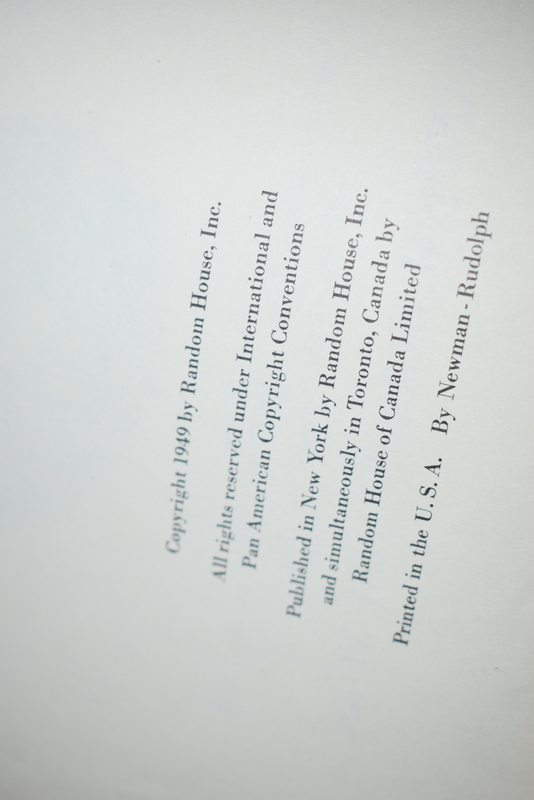 Copyright 1949 by Random House, Inc.
All rights reserved under International and
Pan American Copyright Conventions
Published in New York by Random House, Inc.
and simultaneously in Toronto, Canada by
Random House of Canada Limited
Printed in the U. S. A. By Newman - Rudolph